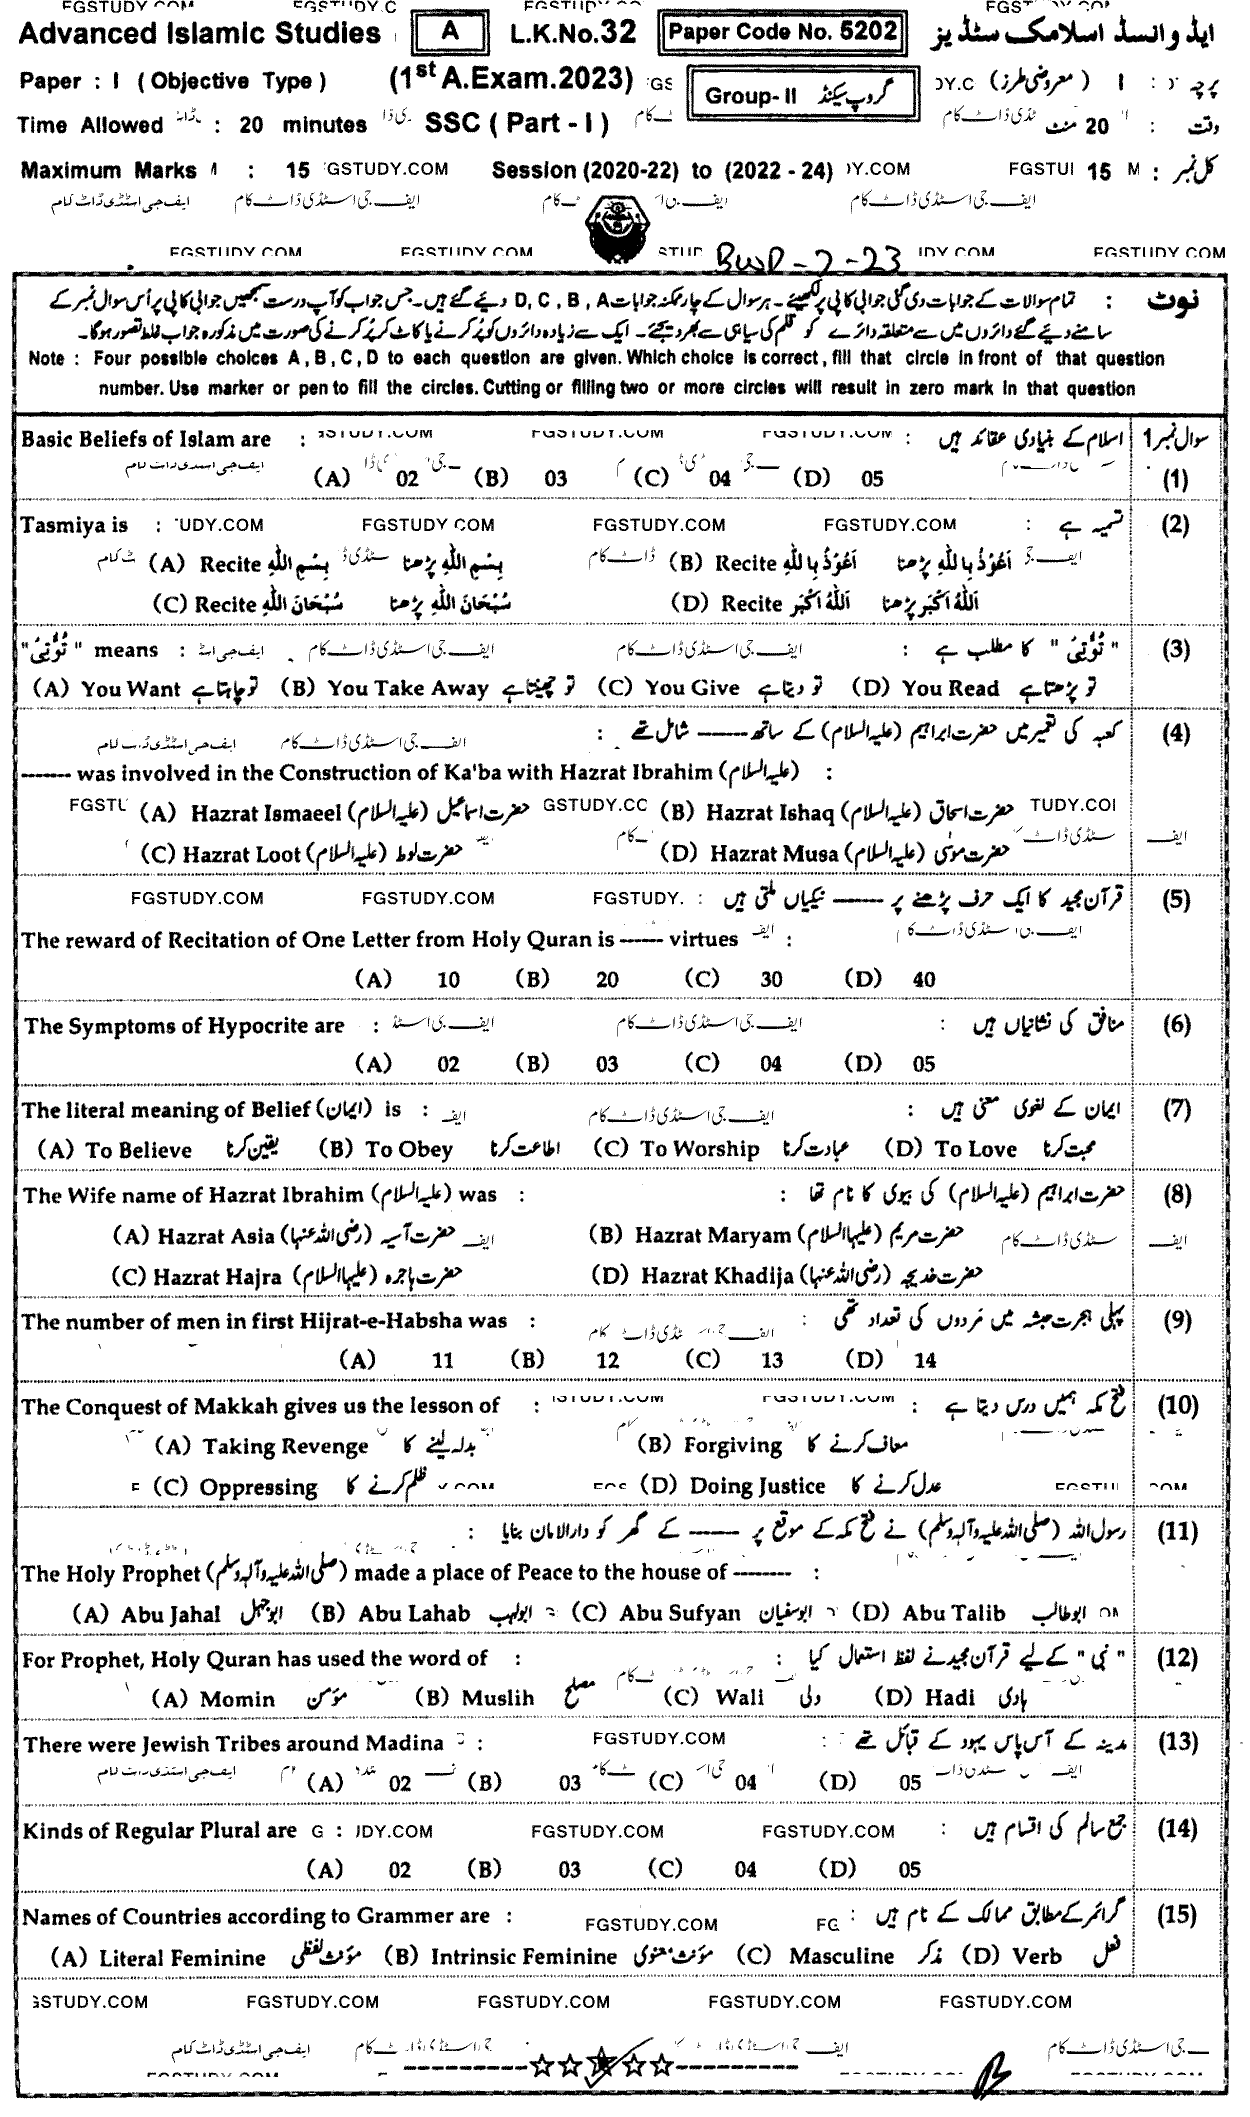 Advanced Islamic Studies A L.K.No.32 Paper Code No. 5202 ایڈوانسڈ اسلامک سٹڈیز
Paper : I ( Objective Type ) (1st A.Exam.2023) Group- II گروپ سیکنڈ پرچہ : I ( معروضی طرز )
Time Allowed : 20 minutes SSC ( Part - I ) وقت : 20 منٹ
Maximum Marks : 15 Session (2020-22) to (2022 - 24) کل نمبر : 15
FGSTUDY.COM FGSTUDY.COM BWP-7-23 FGSTUDY.COM
نوٹ : تمام سوالات کے جوابات دی گئی جوابی کاپی پر لکھیئے۔ ہر سوال کے چار ممکنہ جوابات A , B , C , D دیئے گئے ہیں۔ جس جواب کو آپ درست سمجھیں جوابی کاپی پر اُس سوال نمبر کے
سامنے دیئے گئے دائروں میں سے متعلقہ دائرے کو قلم کی سیاہی سے بھر دیجئے۔ ایک سے زیادہ دائروں کو پُر کرنے یا کاٹ کر پُر کرنے کی صورت میں مذکورہ جواب غلط تصور ہوگا۔
Note : Four possible choices A , B , C , D to each question are given. Which choice is correct, fill that circle in front of that question
number. Use marker or pen to fill the circles. Cutting or filling two or more circles will result in zero mark in that question
Basic Beliefs of Islam are : اسلام کے بنیادی عقائد ہیں : سوال نمبر 1
(A) 02 (B) 03 (C) 04 (D) 05 (1)
Tasmiya is : تسمیہ ہے : (2)
(A) Recite بِسْمِ اللّٰهِ بِسْمِ اللّٰهِ پڑھنا (B) Recite اَعُوْذُ بِاللّٰهِ اَعُوْذُ بِاللّٰهِ پڑھنا
(C) Recite سُبْحَانَ اللّٰهِ سُبْحَانَ اللّٰهِ پڑھنا (D) Recite اَللّٰهُ اَكْبَر اَللّٰهُ اَكْبَر پڑھنا
"تُؤْتِیْ" means : "تُؤْتِیْ" کا مطلب ہے : (3)
(A) You Want تو چاہتا ہے (B) You Take Away تو چھینتا ہے (C) You Give تو دیتا ہے (D) You Read تو پڑھتا ہے
کعبہ کی تعمیر میں حضرت ابراہیم (علیہ السلام) کے ساتھ ------ شامل تھے : (4)
------- was involved in the Construction of Ka'ba with Hazrat Ibrahim (علیہ السلام) :
(A) Hazrat Ismaeel (علیہ السلام) حضرت اسماعیل (B) Hazrat Ishaq (علیہ السلام) حضرت اسحاق
(C) Hazrat Loot (علیہ السلام) حضرت لوط (D) Hazrat Musa (علیہ السلام) حضرت موسٰی
قرآن مجید کا ایک حرف پڑھنے پر ------ نیکیاں ملتی ہیں : (5)
The reward of Recitation of One Letter from Holy Quran is ------ virtues :
(A) 10 (B) 20 (C) 30 (D) 40
The Symptoms of Hypocrite are : منافق کی نشانیاں ہیں : (6)
(A) 02 (B) 03 (C) 04 (D) 05
The literal meaning of Belief (ایمان) is : ایمان کے لغوی معنی ہیں : (7)
(A) To Believe یقین کرنا (B) To Obey اطاعت کرنا (C) To Worship عبادت کرنا (D) To Love محبت کرنا
The Wife name of Hazrat Ibrahim (علیہ السلام) was : حضرت ابراہیم (علیہ السلام) کی بیوی کا نام تھا : (8)
(A) Hazrat Asia (رضی اللہ عنہا) حضرت آسیہ (B) Hazrat Maryam (علیہا السلام) حضرت مریم
(C) Hazrat Hajra (علیہا السلام) حضرت ہاجرہ (D) Hazrat Khadija (رضی اللہ عنہا) حضرت خدیجہ
The number of men in first Hijrat-e-Habsha was : پہلی ہجرت حبشہ میں مردوں کی تعداد تھی : (9)
(A) 11 (B) 12 (C) 13 (D) 14
The Conquest of Makkah gives us the lesson of : فتح مکہ ہمیں درس دیتا ہے : (10)
(A) Taking Revenge بدلہ لینے کا (B) Forgiving معاف کرنے کا
(C) Oppressing ظلم کرنے کا (D) Doing Justice عدل کرنے کا
رسول اللہ (صلی اللہ علیہ وآلہ وسلم) نے فتح مکہ کے موقع پر ------ کے گھر کو دارالامان بنایا : (11)
The Holy Prophet (صلی اللہ علیہ وآلہ وسلم) made a place of Peace to the house of -------- :
(A) Abu Jahal ابو جہل (B) Abu Lahab ابو لہب (C) Abu Sufyan ابو سفیان (D) Abu Talib ابو طالب
For Prophet, Holy Quran has used the word of : "نبی" کے لیے قرآن مجید نے لفظ استعمال کیا : (12)
(A) Momin مؤمن (B) Muslih مصلح (C) Wali ولی (D) Hadi ہادی
There were Jewish Tribes around Madina : مدینہ کے آس پاس یہود کے قبائل تھے : (13)
(A) 02 (B) 03 (C) 04 (D) 05
Kinds of Regular Plural are : جمع سالم کی اقسام ہیں : (14)
(A) 02 (B) 03 (C) 04 (D) 05
Names of Countries according to Grammer are : گرائمر کے مطابق ممالک کے نام ہیں : (15)
(A) Literal Feminine مؤنث لفظی (B) Intrinsic Feminine مؤنث معنوی (C) Masculine مذکر (D) Verb فعل
FGSTUDY.COM FGSTUDY.COM FGSTUDY.COM FGSTUDY.COM